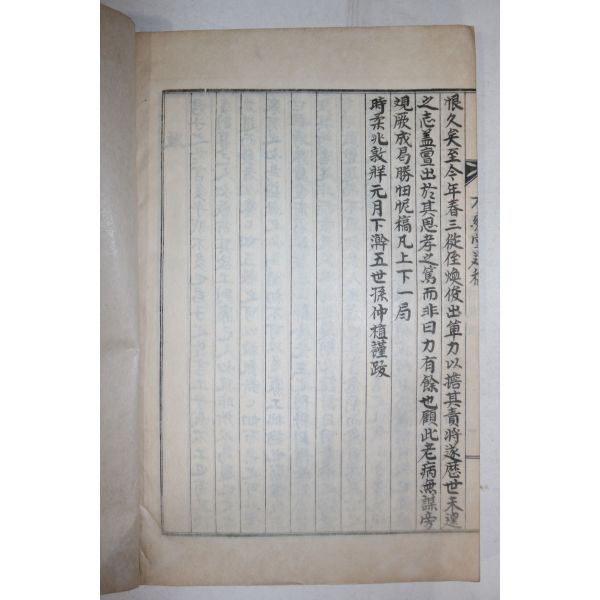 恨久矣至今年春三從侄煥俊出單力以擔其責將遂歷世未遑
之志盖亶出於其思孝之篤而非曰力有餘也顧此老病無謀旁
觀厥成曷勝忸怩稿凡上下一局
時柔兆敦牂元月下澣五世孫仲植謹跋